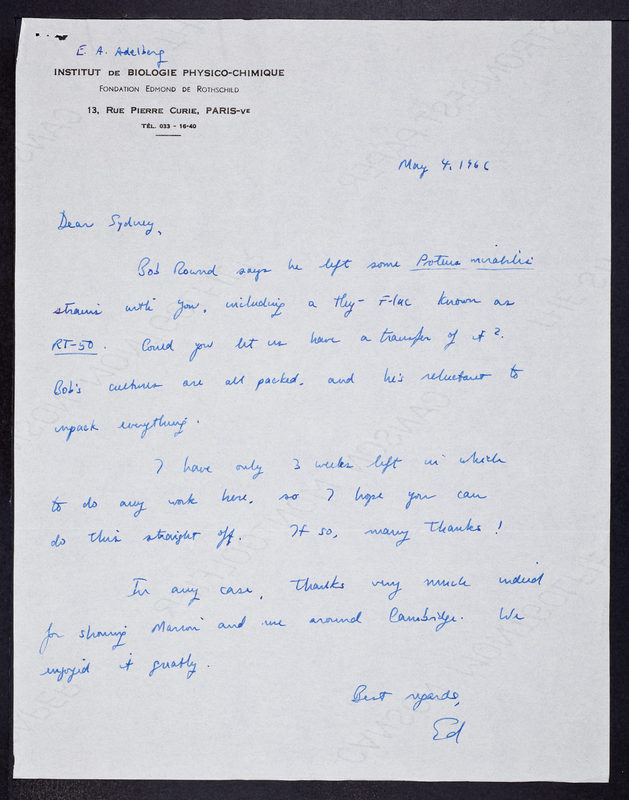 E. A. Adelberg
INSTITUT DE BIOLOGIE PHYSICO-CHIMIQUE
FONDATION EDMOND DE ROTHSCHILD
13, RUE PIERRE CURIE, PARIS-VE
TÉL. 033 - 16-40
May 4, 1966
Dear Sydney,
Bob Rownd says he left some Proteus mirabilis
strains with you, including a thy- F-lac known as
RT-50. Could you let us have a transfer of it?
Bob's cultures are all packed, and he's reluctant to
unpack everything.
I have only 3 weeks left in which
to do any work here, so I hope you can
do this straight off. If so, many thanks!
In any case, thanks very much indeed
for showing Marion and me around Cambridge. We
enjoyed it greatly.
Best regards,
Ed